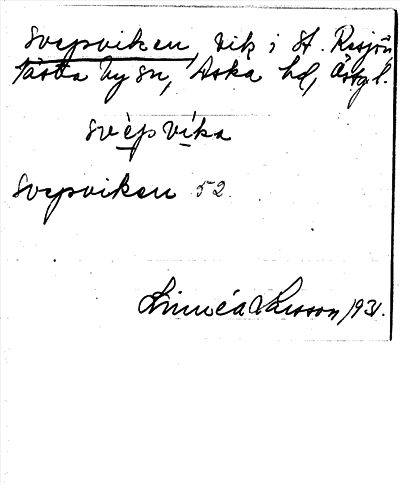 Svepviken, vik i St. Rosjön
Västra Ny sn, Aska hd, Östg l.
svèpvíka
Svepviken 52
Linnéa Larsson 1931.